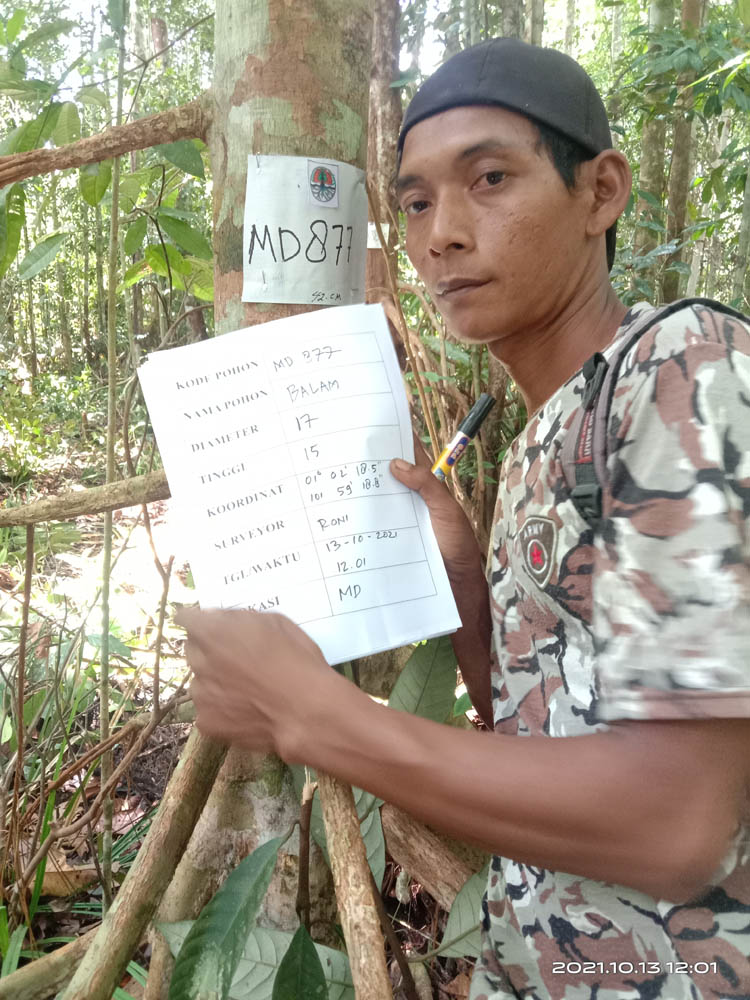 MD877
42.CM
KODE POHON MD 877
NAMA POHON BALAM
DIAMETER 17
TINGGI 15
KOORDINAT 01° 02' 18.5"
101 59' 18.8"
SURVEYOR RONI
TGL/WAKTU 13-10-2021
12.01
KASI MD
ARMY
2021.10.13 12:01